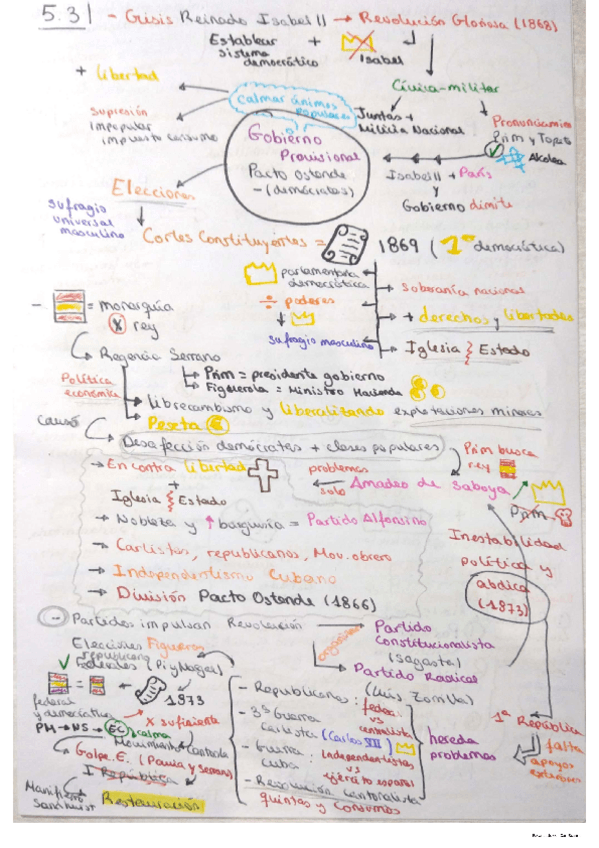 5.3 - Crisis Reinado Isabel II → Revolución Gloriosa (1868)
Establecer sistema democrático + Isabel
+ libertad
Cívico-militar
calmar ánimos populares
supresión impopular impuesto consumo
Juntas + Milicia Nacional
Pronunciamien Prim y Topete
Alcolea
Gobierno Provisional
Pacto Ostende
- (demócratas)
Isabel II → París
y
Gobierno dimite
Elecciones
sufragio universal masculino
Cortes Constituyentes = 1869 (1ª democrática)
parlamentaria democrática
÷ poderes
→ soberanía nacional
→ + derechos y libertades
sufragio masculino
→ Iglesia Estado
- = monarquía
x rey
→ Regencia Serrano
→ Prim = presidente gobierno
→ Figuerola = Ministro Hacienda
Política económica
→ librecambismo y liberalizando explotaciones mineras
→ Peseta
causó
Desafección demócratas + clases populares
Prim busca rey
→ En contra libertad
+
Iglesia Estado
problemas
solo
Amadeo de Saboya
Prim
→ Nobleza y ↑ burguesía = Partido Alfonsino
→ Carlistas, republicanos, Mov. obrero
→ Independentismo Cubano
→ División Pacto Ostende (1866)
Inestabilidad política y abdica (1873)
- Partidos impulsan Revolución
organizan
→ Partido Constitucionalista (Sagasta)
→ Partido Radical (Luis Zorrilla)
Elecciones Figueras
republicano
✓ Federales (Pi y Margall)
= + 1873
federal y democrática
x suficiente
PM → NS → EC calma
Movimiento Cantonal
→ Golpe E. (Pavía y Serrano)
I República
Manifiesto Sandhurst
→ Restauración
- Republicanos: federal vs centralista
- 3ª Guerra Carlista (Carlos VII)
- Guerra Cuba: independentistas vs ejército español
- Revolución Cantonalista
quintas y consumos
hereda problemas
1ª República
falta apoyos exteriores